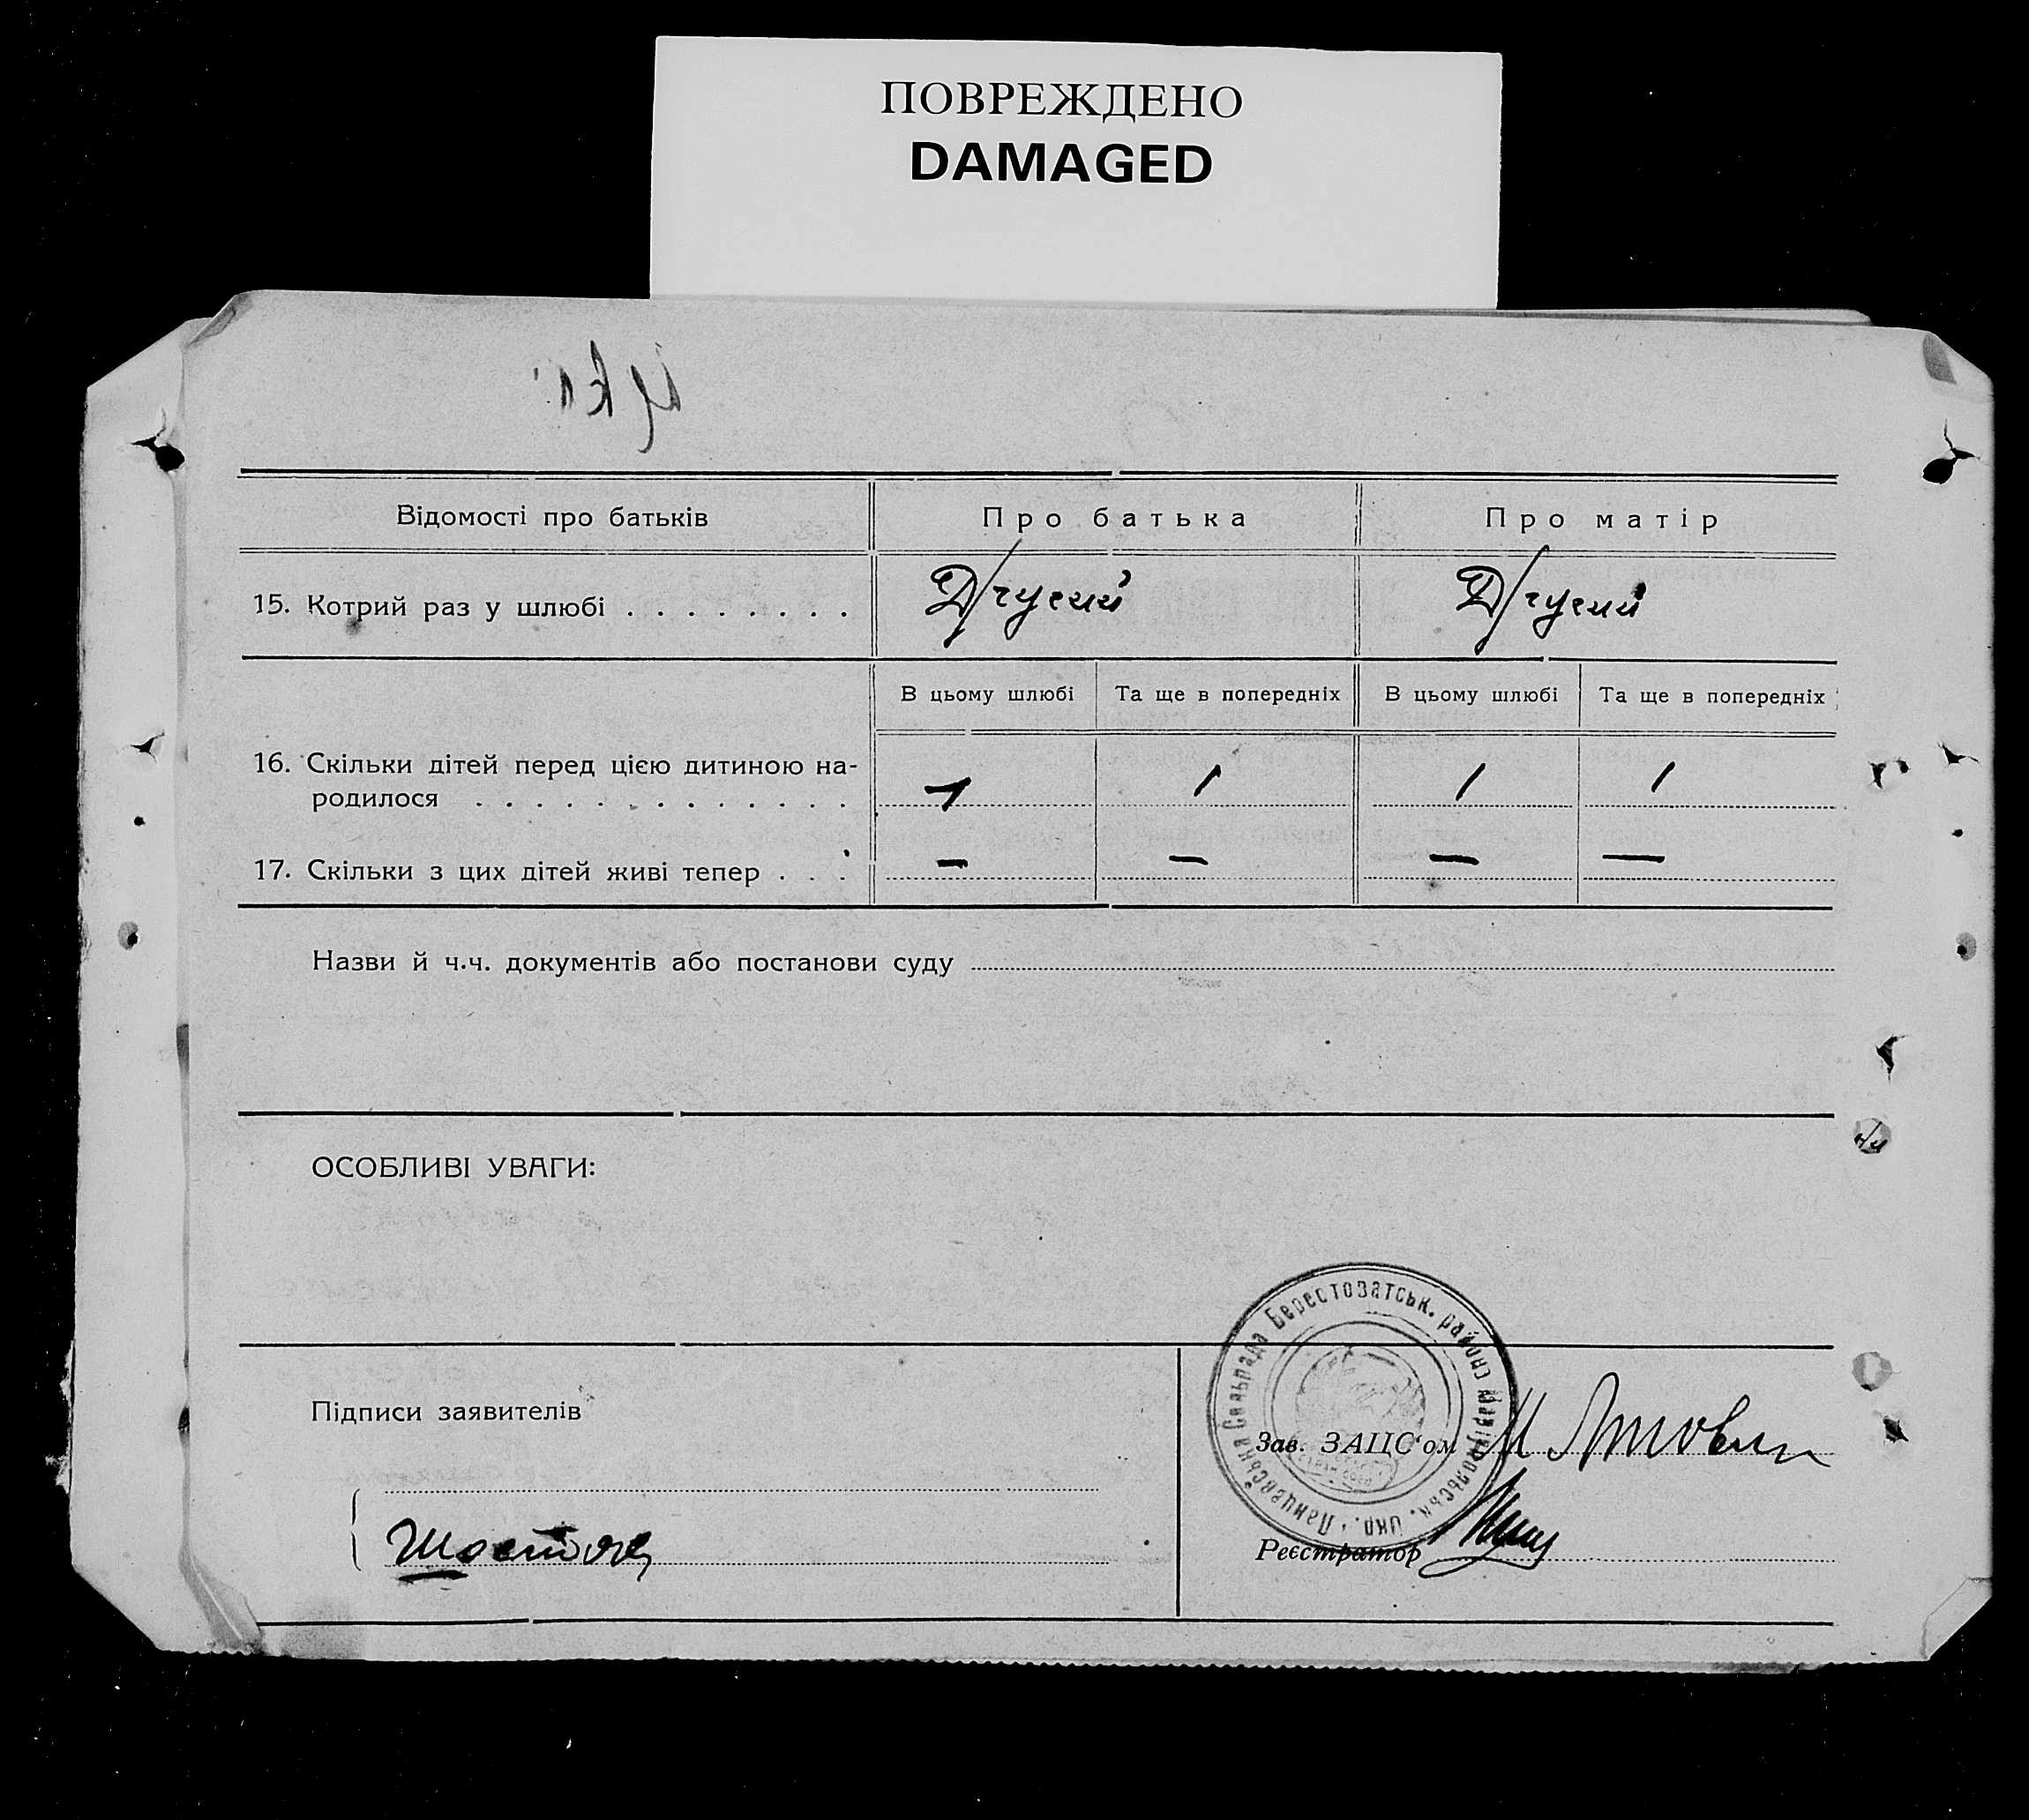 ПОВРЕЖДЕНО
DAMAGED
Відомості про батьків
Про батька
Про матір
15. Котрий раз у шлюбі . . . . . . . .
Другий
Другий
В цьому шлюбі
Та ще в попередніх
В цьому шлюбі
Та ще в попередніх
16. Скільки дітей перед цією дитиною на-
родилося . . . . . . . . . . . . .
1
1
1
1
17. Скільки з цих дітей живі тепер . . .
—
—
—
—
Назви й ч.ч. документів або постанови суду
ОСОБЛИВІ УВАГИ:
Підписи заявителів
Шостак
Сельрада Берестоватськ. району Маріюпольськ. окр.
Зав. ЗАЦС'ом
Реєстратор